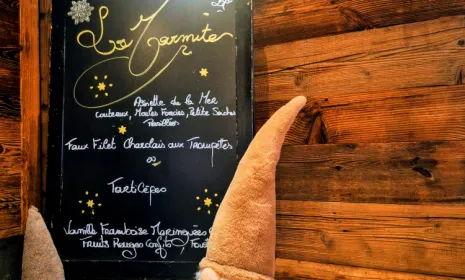 La Marmite
Assiette de la Mer
Couteaux, Moules Farcies, Petite Seiches
Persillées
Faux Filet Charolais aux Trompettes
ou
Tarti Cèpes
Vanille Framboise Meringuées
Fruits Rouges Confits,